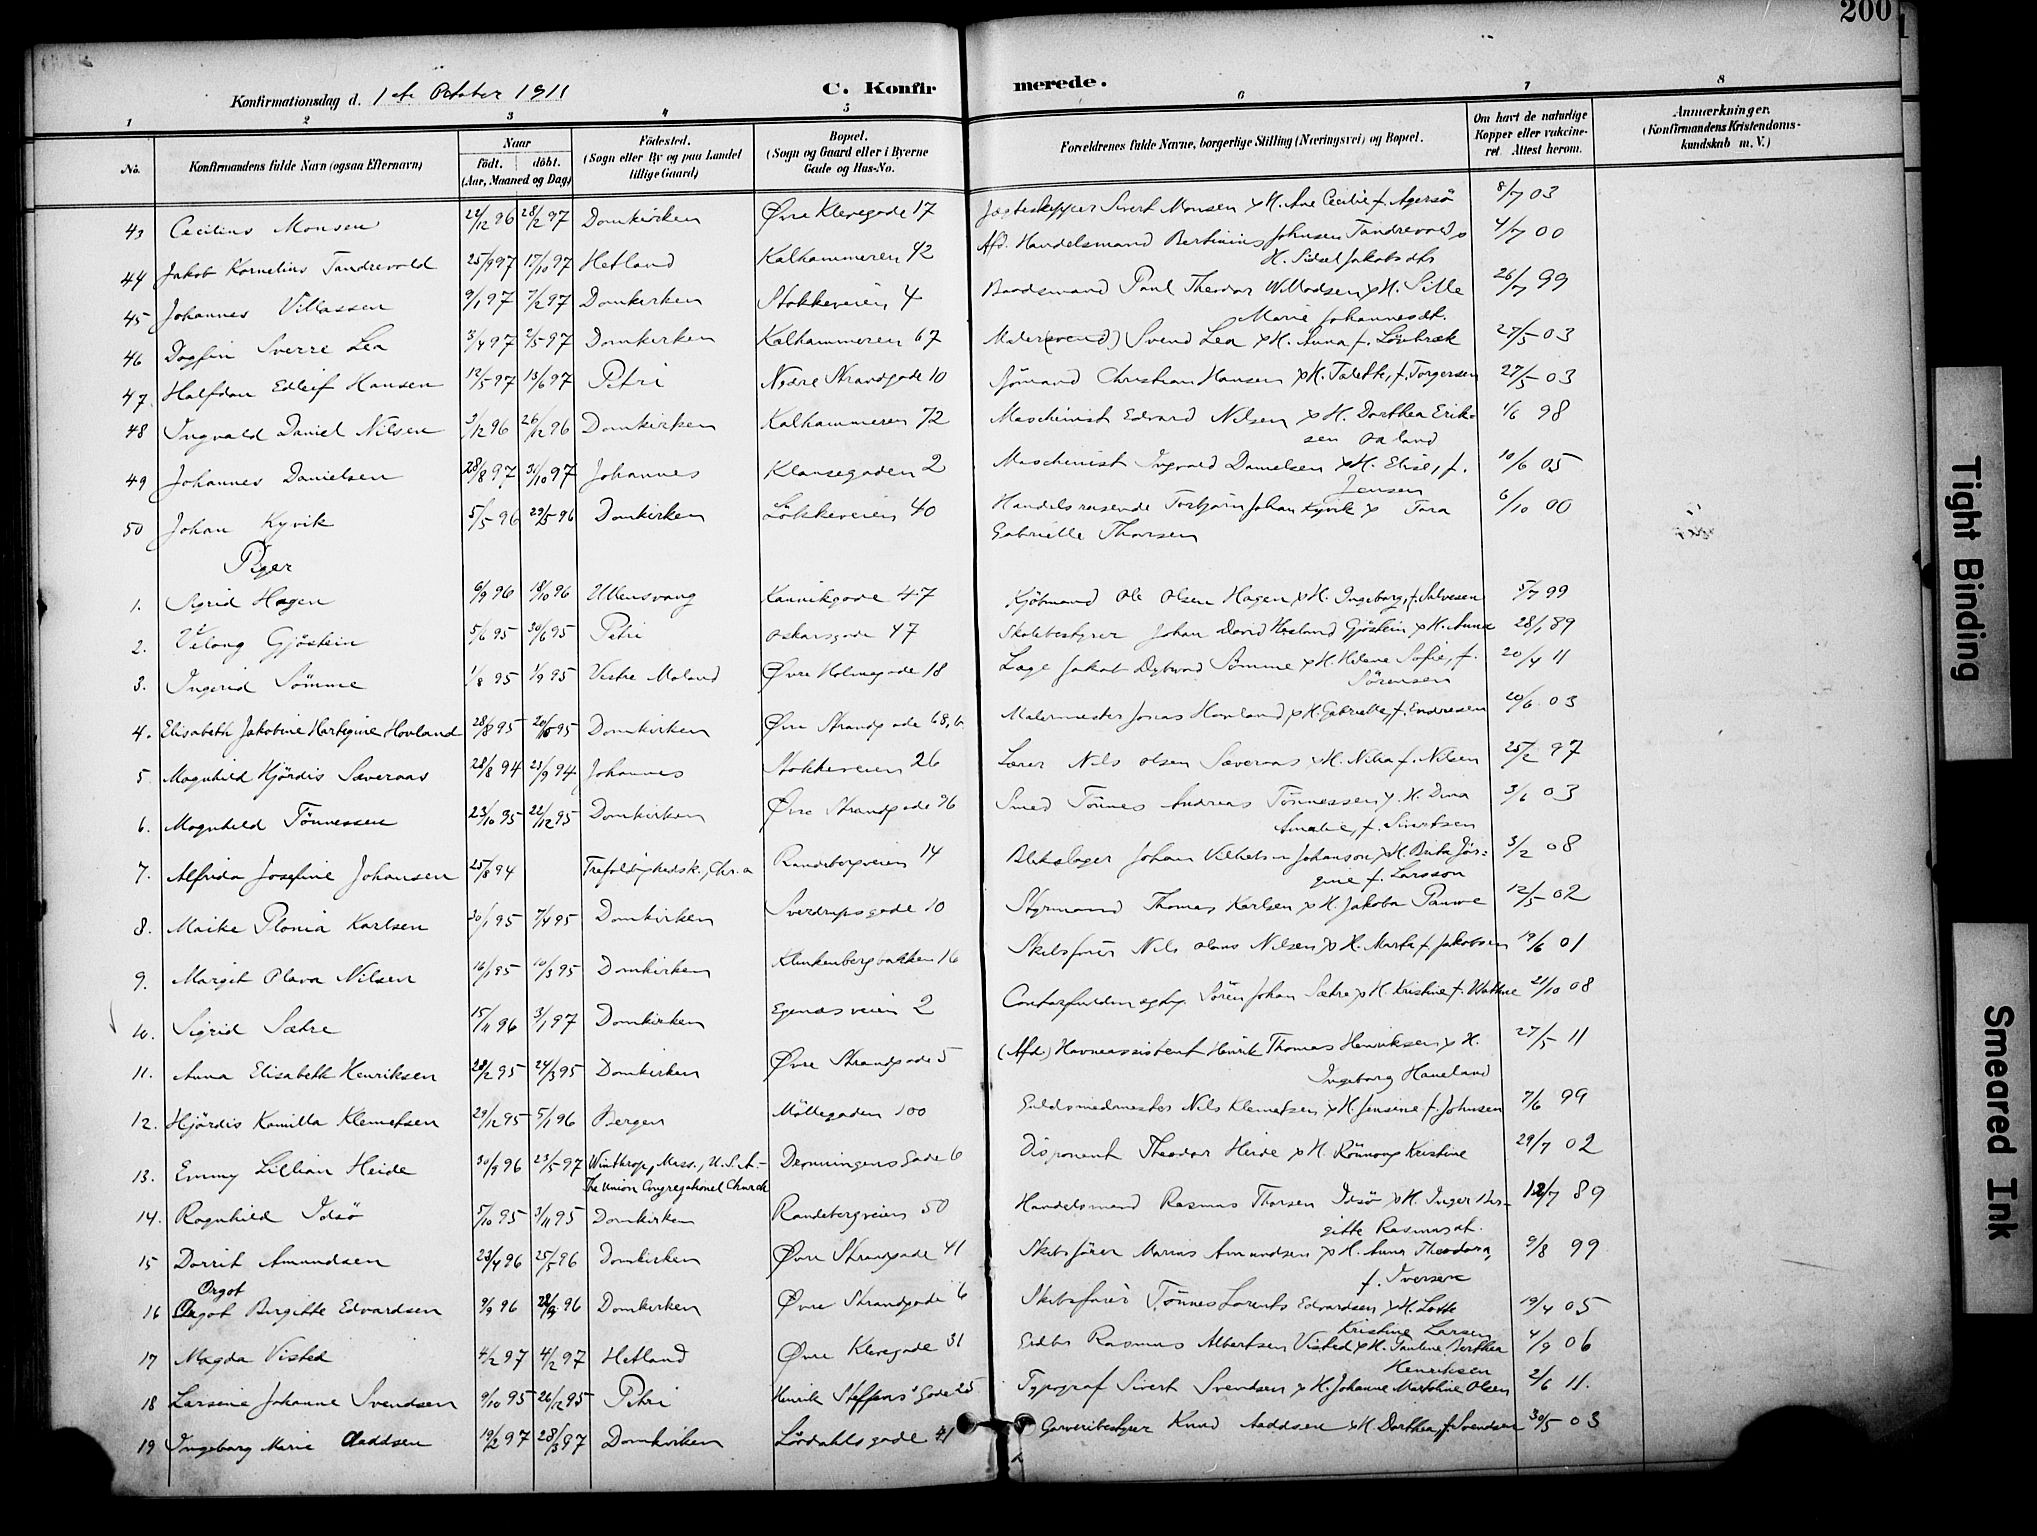 200
Konfirmationsdag d. 1ste October 1911
C. Konfirmerede.
1 2 3 4 5 6 7 8
No. Konfirmandens fulde Navn (ogsaa Efternavn) Naar født, døbt. (Aar, Maaned og Dag) Fødested. (Sogn eller By og paa Landet tillige Gaard) Bopæl. (Sogn og Gaard eller i Byerne Gade og Hus-No. Forældrenes fulde Navne, borgerlige Stilling (Næringsvei) og Bopæl. Om havt de naturlige Kopper eller vaccineret. Attest herom. Anmærkninger. (Konfirmandens Kristendomskundskab m. V.)
43 Cecilius Monsen 22/12 96 28/2 97 Domkirken Øvre Klevegade 17 Jægteskipper Sivert Monsen & H. Ane Cecilie f. Agersö 8/7 03
44 Jakob Kornelius Tandrevold 25/9 97 17/10 97 Hetland Kalhammeren 42 Afd. Handelsmand Bertinius Johnsen Tandrevold &
H. Sidsel Jakobsdtr 4/7 00
45 Johannes Villassen 9/1 97 7/2 97 Domkirken Stokkeveien 4 Baadsmand Paul Theodor Willadsen & H. Sille
Marie Johannesdt. 26/7 99
46 Dagfin Sverre Lea 3/4 97 2/5 97 Domkirken Kalhammeren 67 Maler(svend) Svend Lea & H. Anna f. Lövbræk 27/5 03
47. Halfdan Edleif Hansen 12/5 97 13/6 97 Petri Nedre Strandgade 10 Sjömand Christian Hansen & H. Talette, f. Torgersen 27/5 03
48 Ingvald Daniel Nilsen 3/12 96 26/12 96 Domkirken Kalhammeren 72 Maschinist Edvard Nilsen & H. Dorthea Erik-
sen Oaland 1/6 98
49 Johannes Danielsen 28/8 97 31/10 97 Johannes Klausegaden 2 Maschinist Ingvald Danielsen & H. Elise, f.
Jensen 10/6 05
50 Johan Kyvik 5/5 96 29/5 96 Domkirken Lökkeveien 40 Handelsreisende Torbjörn Johan Kyvik & Tora
Gabrielle Thorsen 6/10 00
Piger
1. Sigrid Hagen 6/9 96 18/10 96 Ullensvang Kannikgade 47 Kjöbmand Ole Olsen Hagen & H. Ingeborg, f. Salvesen 5/7 99
2. Vilong Gjöstein 5/6 95 30/6 95 Petri Oskarsgade 47 Skolebestyrer Johan David Haaland Gjöstein & H. Anna 28/1 89
3. Ingerid Sömme 1/8 95 1/9 95 Vestre Moland Øvre Holmegade 18 Læge Jakob Dybwad Sömme & H. Helene Sofie, f.
Sörensen 20/4 11
4. Elisabeth Jakobine Hartvigine Hovland 28/8 95 20/10 95 Domkirken Øvre Strandgade 68, b. Malermester Jonas Hovland & H. Gabrielle, f. Endresen 20/6 03
5. Magnhild Hjördis Sæveraas 28/8 94 23/9 94 Johannes Stokkeveien 26 Lærer Nils Olsen Sæveraas & H. Nilia f. Nilsen 25/2 97
6. Magnhild Tönnessen 23/10 95 22/12 95 Domkirken Øvre Strandg 96 Smed Tönnes Andreas Tönnessen & H. Dina
Amalie, f. Sivertsen 3/6 03
7. Alfrida Josefine Johansen 25/8 94 Trefoldighedsk., Chr.a Randebergveien 14 Blikslager Johan Vilhelm Johanson & H. Brita Jör-
gine f. Larsson 3/2 08
8. Maike Plonia Karlsen 30/1 95 7/4 95 Domkirken Sverdrupsgade 10 Styrmand Thomas Karlsen & H. Jakoba Pauwe 12/5 02
9. Margit Olava Nilsen 16/1 95 10/3 95 Domkirken Klinkenbergbakken 16 Skibsförer Nils Olaus Nilsen & H. Marta f. Jakobsen 19/6 01
10. Sigrid Sætre 15/11 96 3/1 97 Domkirken Egenæsveien 2 Contorfuldmægtig Sören Johan Sætre & H. Kristine f. Wathne 21/10 08
11. Anna Elisabeth Henriksen 28/2 95 24/3 95 Domkirken Øvre Strandgade 5 (Afd.) Havneassistent Henrik Thomas Henriksen & H.
Ingeborg Haueland 27/5 11
12. Hjördis Kamilla Klemetsen 29/12 95 5/1 96 Bergen Möllegaden 100 Guldsmedmester Nils Klemetsen & H. Jensine f. Johnsen 7/6 99
13. Emmy Lillian Heide 30/9 96 23/5 97 Winthrop, Mass., U.S.A.-
The Union Congregational Church Dronningens Gade 6 Disponent Theodor Heide & H. Rönnoug Kristine 29/7 02
14. Ragnhild Idsö 5/10 95 3/11 95 Domkirken Randebergveien 50 Handelsmand Rasmus Thorsen Idsö & H. Inger Bir-
gitte Rasmusdt. 12/7 89
15 Dorrit Amundsen 23/4 96 25/5 96 Domkirken Øvre Strandgade 41 Skibsförer Marius Amundsen & H. Anna Theodora,
f. Iversen 9/8 99
Orgot
16 Orgot Birgitte Edvardsen 9/9 96 28/9 96 Domkirken Øvre Strandgade 6 Skibsförer Tönnes Lorents Edvardsen & H. Lotte
Kristine Larsen 19/4 05
17 Magda Visted 4/2 97 4/2 97 Hetland Øvre Klevegade 31 Rasmus Albertsen Visted & H. Pauline Berthea
Henriksen 4/9 06
18 Larsine Johanne Svendsen 9/10 95 26/12 95 Petri Henrik Steffens' Gade 25 Typograf Sivert Svendsen & H. Johanne Martoline Olsen 2/6 11.
19 Ingeborg Marie Aaddsen 19/2 97 28/3 97 Domkirken Lövdahlsgade 41 Garveribestyrer Knud Aaddsen & H. Dorthea, f. Svendsen 30/5 03
Tight Binding
Smeared Ink